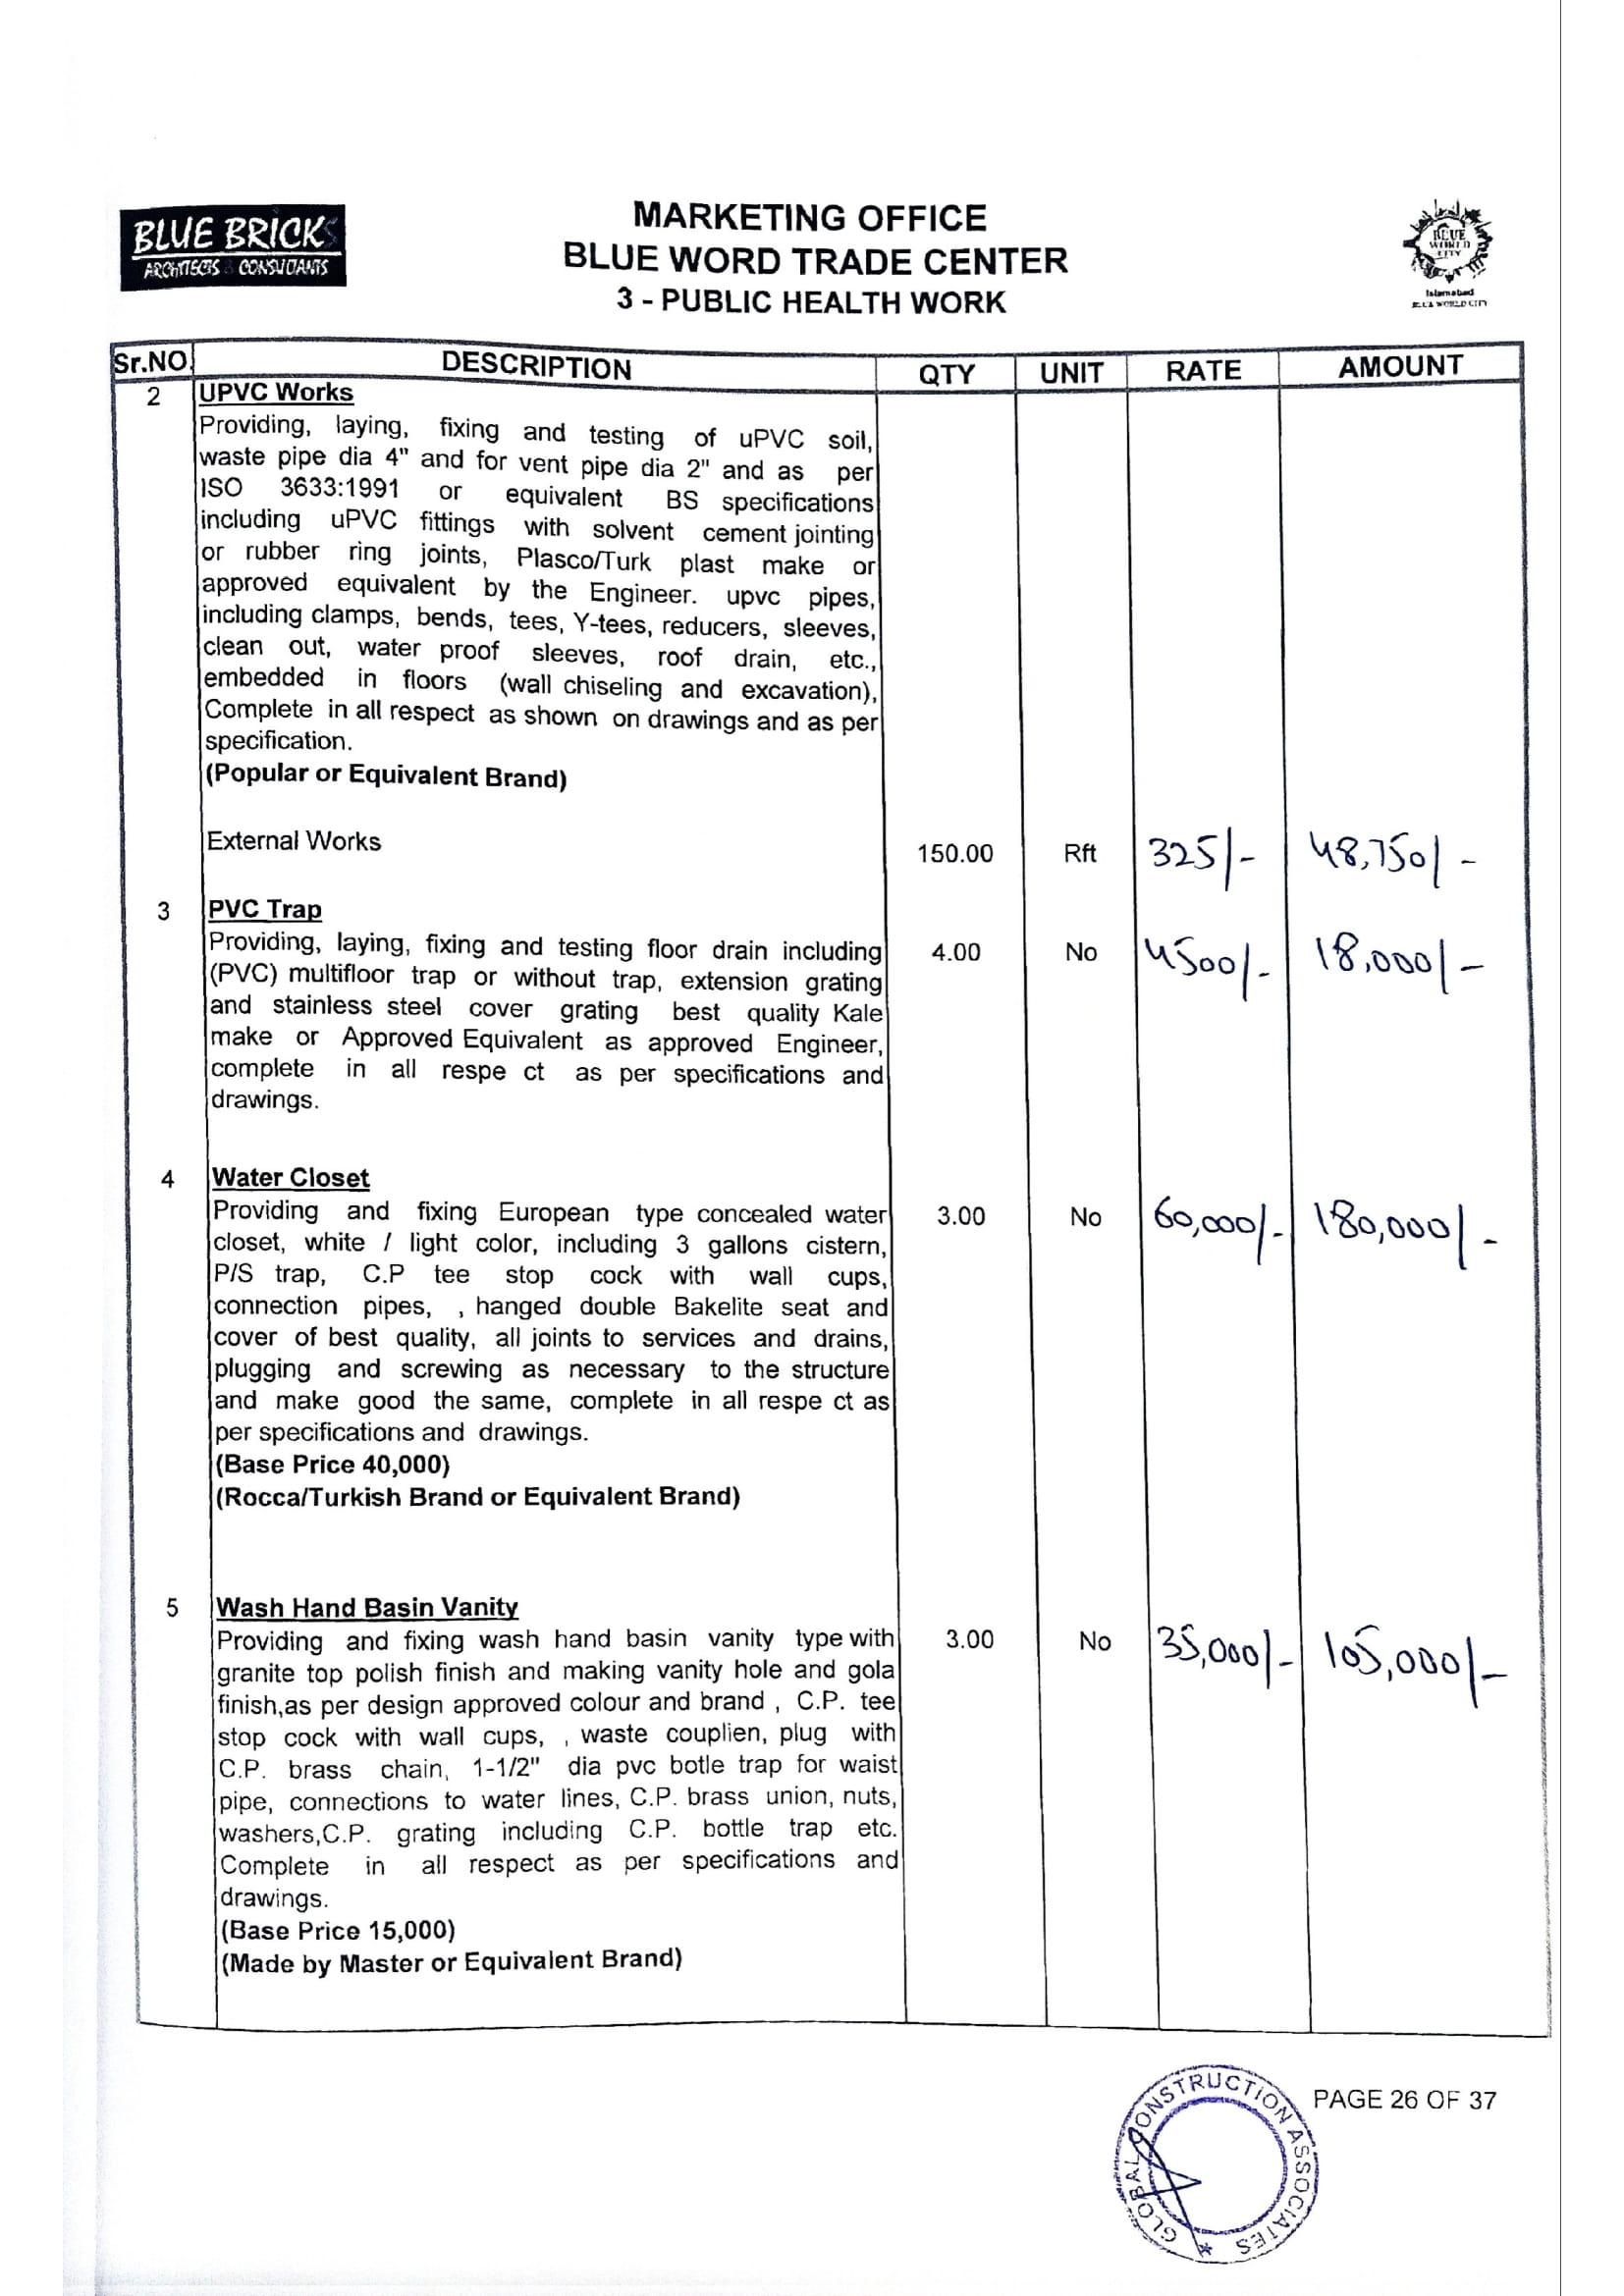 BLUE BRICKS
ARCHITECTS & CONSULTANTS
MARKETING OFFICE
BLUE WORD TRADE CENTER
3 - PUBLIC HEALTH WORK
BLUE
WORLD
CITY
Islamabad
BLUE WORLD CITY
Sr.NO. DESCRIPTION QTY UNIT RATE AMOUNT
2 UPVC Works
Providing, laying, fixing and testing of uPVC soil,
waste pipe dia 4" and for vent pipe dia 2" and as per
ISO 3633:1991 or equivalent BS specifications
including uPVC fittings with solvent cement jointing
or rubber ring joints, Plasco/Turk plast make or
approved equivalent by the Engineer. upvc pipes,
including clamps, bends, tees, Y-tees, reducers, sleeves,
clean out, water proof sleeves, roof drain, etc.,
embedded in floors (wall chiseling and excavation),
Complete in all respect as shown on drawings and as per
specification.
(Popular or Equivalent Brand)
External Works 150.00 Rft 325/- 48,750/-
3 PVC Trap
Providing, laying, fixing and testing floor drain including 4.00 No 4500/- 18,000/-
(PVC) multifloor trap or without trap, extension grating
and stainless steel cover grating best quality Kale
make or Approved Equivalent as approved Engineer,
complete in all respe ct as per specifications and
drawings.
4 Water Closet
Providing and fixing European type concealed water 3.00 No 60,000/- 180,000/-
closet, white / light color, including 3 gallons cistern,
P/S trap, C.P tee stop cock with wall cups,
connection pipes, , hanged double Bakelite seat and
cover of best quality, all joints to services and drains,
plugging and screwing as necessary to the structure
and make good the same, complete in all respe ct as
per specifications and drawings.
(Base Price 40,000)
(Rocca/Turkish Brand or Equivalent Brand)
5 Wash Hand Basin Vanity
Providing and fixing wash hand basin vanity type with 3.00 No 35,000/- 105,000/-
granite top polish finish and making vanity hole and gola
finish,as per design approved colour and brand , C.P. tee
stop cock with wall cups, , waste couplien, plug with
C.P. brass chain, 1-1/2" dia pvc botle trap for waist
pipe, connections to water lines, C.P. brass union, nuts,
washers,C.P. grating including C.P. bottle trap etc.
Complete in all respect as per specifications and
drawings.
(Base Price 15,000)
(Made by Master or Equivalent Brand)
PAGE 26 OF 37
GLOBAL CONSTRUCTION ASSOCIATES *